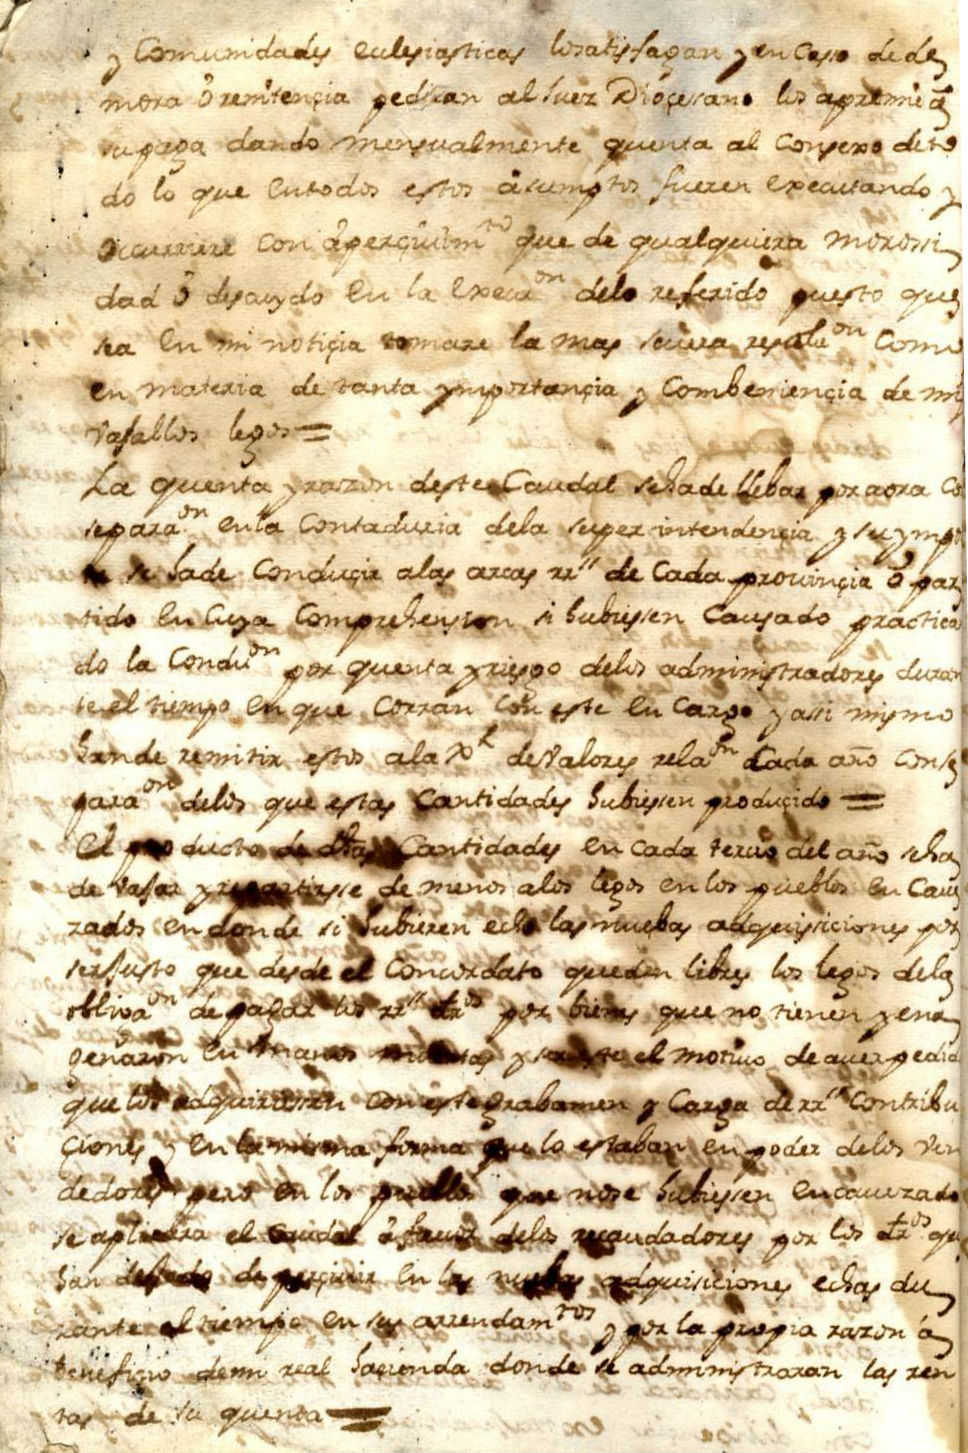 y Comunidades eclesiasticas lo satisfagan y en caso de de
mora ô renitençia pediran al Juez Dioçesano los apremie â
su paga dando mensualmente quenta al Consexo de to
do lo que en todos estos âsumptos fueren executando y
occurriere con âperçiuim.to que de qualquiera morossi
dad ô descuydo en la Execu.on delo referido puesto que
sea en mi notiçia tomare la mas seuera resolu.on Como
en materia de tanta ymportançia y Combeniençia de mis
vasallos legos =
La quenta y razon deste Caudal se ha de llebar por aora Co
separa.on en la Contaduria dela super intendençia y su ymp
se hade Conduçir alas arcas rr.s de Cada prouinçia ô par
tido en Cuya Comprehension si hubiessen Causado practica
do la Condu.on por quenta y riesgo delos administradores duran
te el tiempo en que Corran con este en Cargo y assi mismo
han de remitir estos ala de Valores rela.on Cada año con se
para.on delos que estas Cantidades hubiessen produçido =
El producto de dhas Cantidades en cada terçio del año se ha
de vajar y repartirsse de menos alos legos en los pueblos en Caue
zados en donde si hubieren echo las nuebas adquisiciones por
ser Justo que desde el Concordato queden libres los legos dela
obliga.on de pagar los rr.s dr.os por bienes que no tienen y ena
genaron en manos muertas y ser este el motiuo de auer pedid
que los adquiriessen con este grabamen y Carga de rr.s Contribu
çiones y en la misma forma que lo estaban en poder delos ven
dedores pero en los pueblos que no se hubiessen encauezado
se aplicara el Caudal â fauor delos recaudadores por los dr.os que
han dejado de perçiuir en las nuebas adquisiciones echas du
rante el tiempo en sus arrendam.tos y por la propia razon â
beneficio demi real haçienda donde se administraran las ren
tas de su quenta =